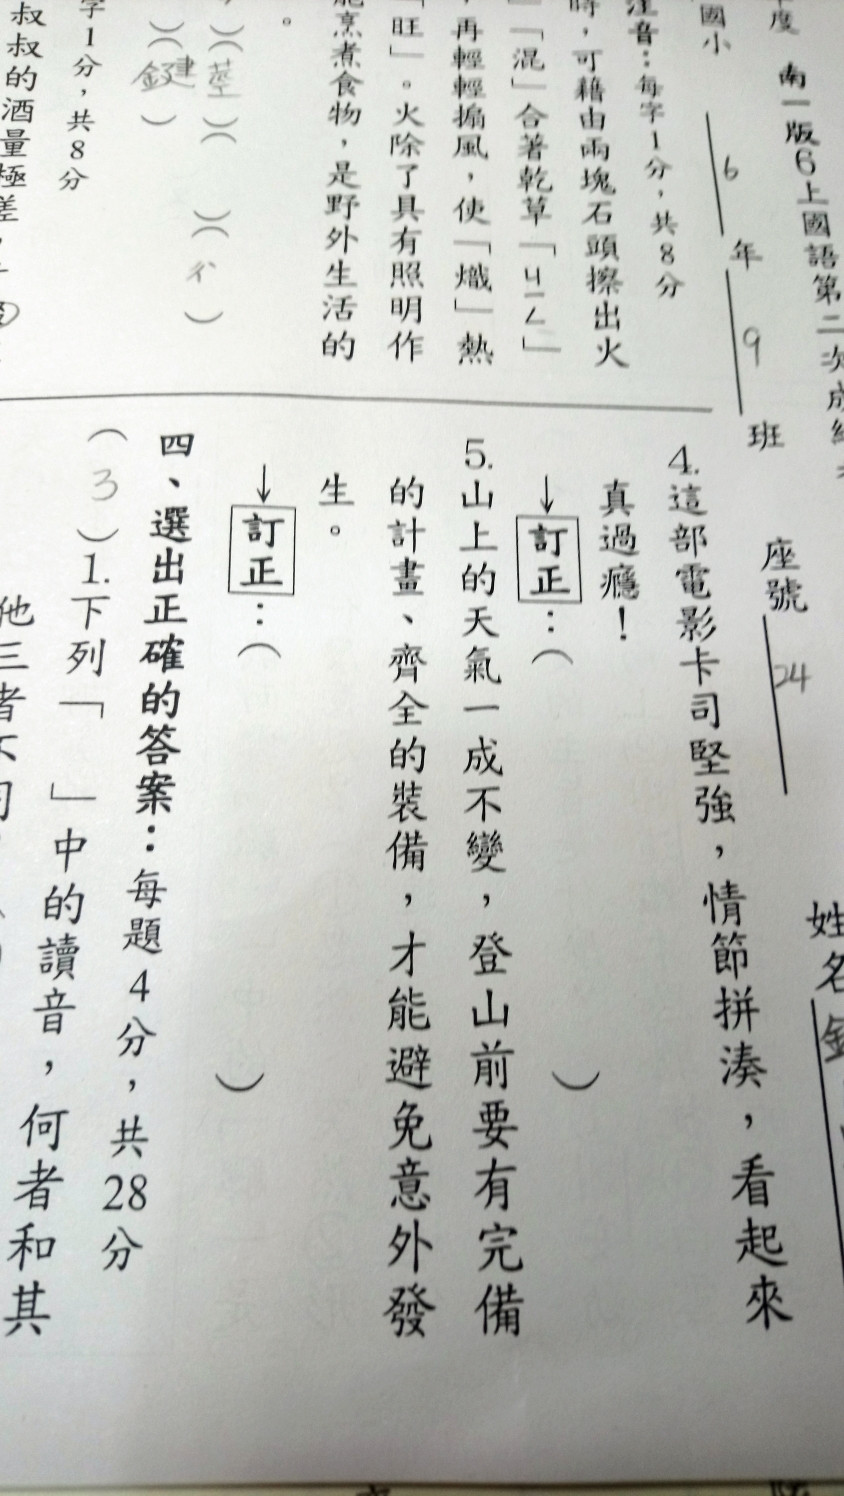 年度 南一版6上國語第二次成
國小 6 年 9 班 座號 24 姓名
注音：每字1分，共8分
時，可藉由兩塊石頭擦出火
」「混」合著乾草「ㄐㄧㄥ」
，再輕輕搧風，使「熾」熱
「旺」。火除了具有照明作
能烹煮食物，是野外生活的
。
字1分，共8分
叔叔的酒量極差，
4.這部電影卡司堅強，情節拼湊，看起來
真過癮！
↓訂正：（ ）
5.山上的天氣一成不變，登山前要有完備
的計畫、齊全的裝備，才能避免意外發
生。
↓訂正：（ ）
四、選出正確的答案：每題4分，共28分
（3）1.下列「 」中的讀音，何者和其
他三者不同？